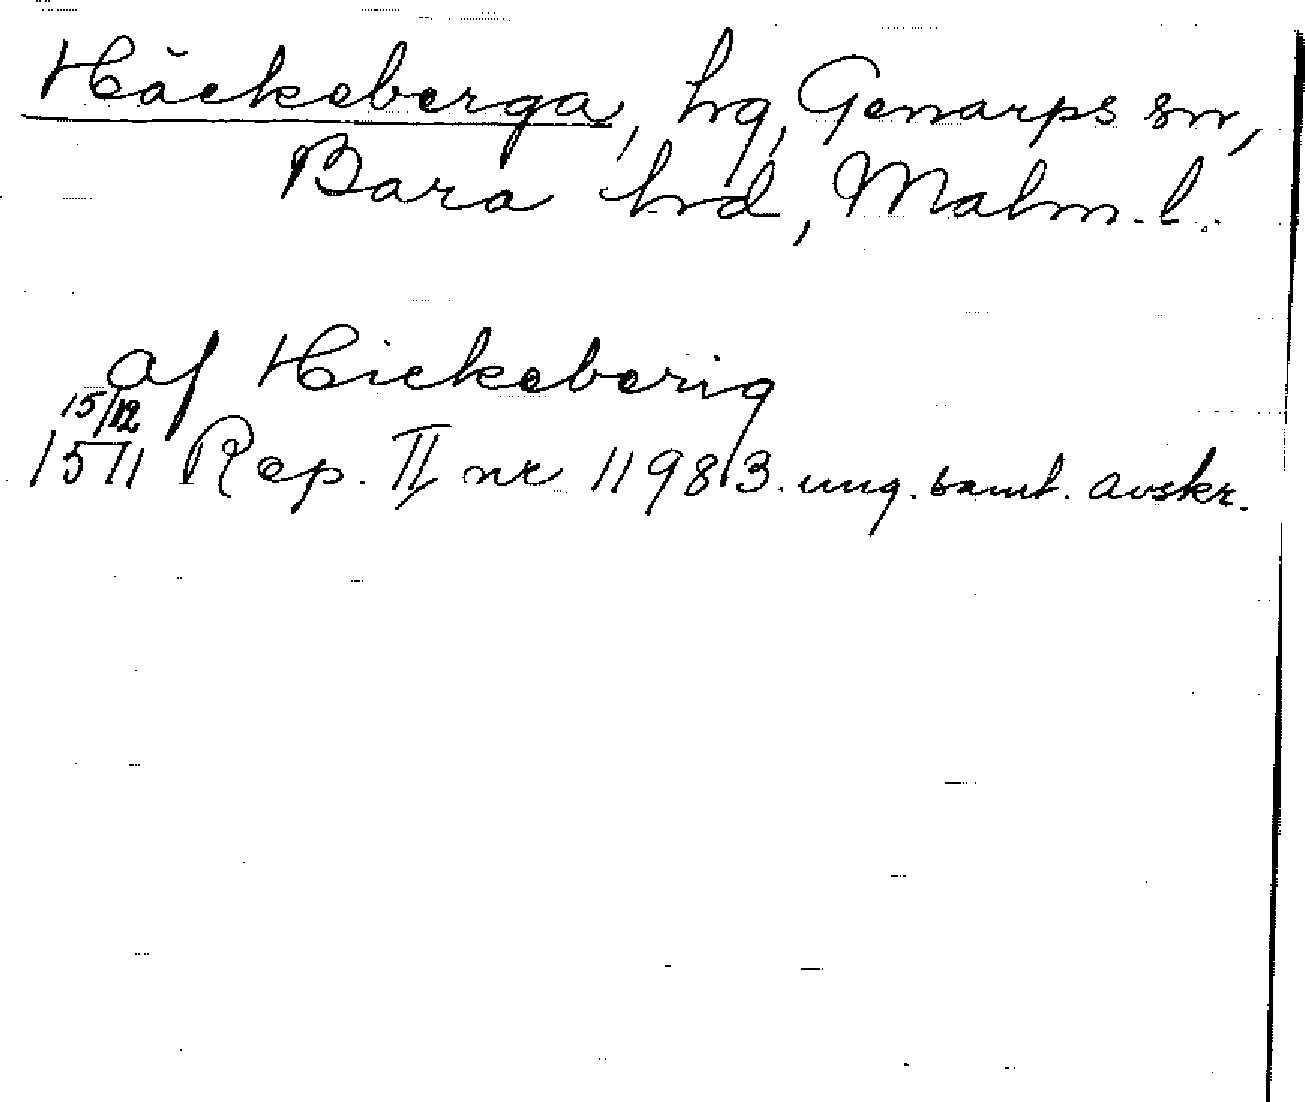 Häckeberga, hg, Genarps sn,
Bara hd, Malm. l.
af Hickeberig
15/12
1511 Rep. II nr 11983. ung. samt. avskr.